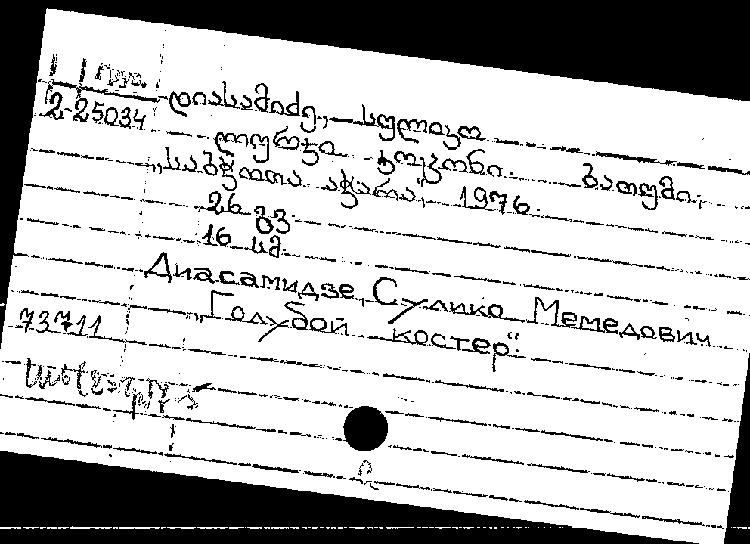 2-25034
დიასამიძე, სულიკო
ლურჯი კოცონი. ბათუმი,
„საბჭოთა აჭარა“, 1976.
26 გვ.
16 სმ.
Диасамидзе, Сулико Мемедович
„Голубой костер“.
73711